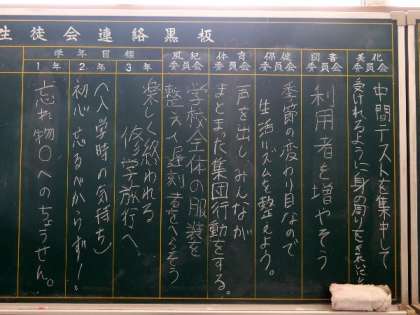 生徒会連絡黒板
美化委員会
中間テストを集中して
受けれるように身の周りをきれいに
図書委員会
利用者を増やそう
保健委員会
季節の変わり目なので
生活リズムを整えよう。
体育委員会
声を出しみんなが
まとまった集団行動をする。
風紀委員会
学校全体の服装を
整え、遅刻者をへらそう
学年目標
3年
楽しく終われる
修学旅行へ。
2年
〈入学時の気持ち〉
初心忘るべからず!
1年
忘れ物0へのちょうせん。